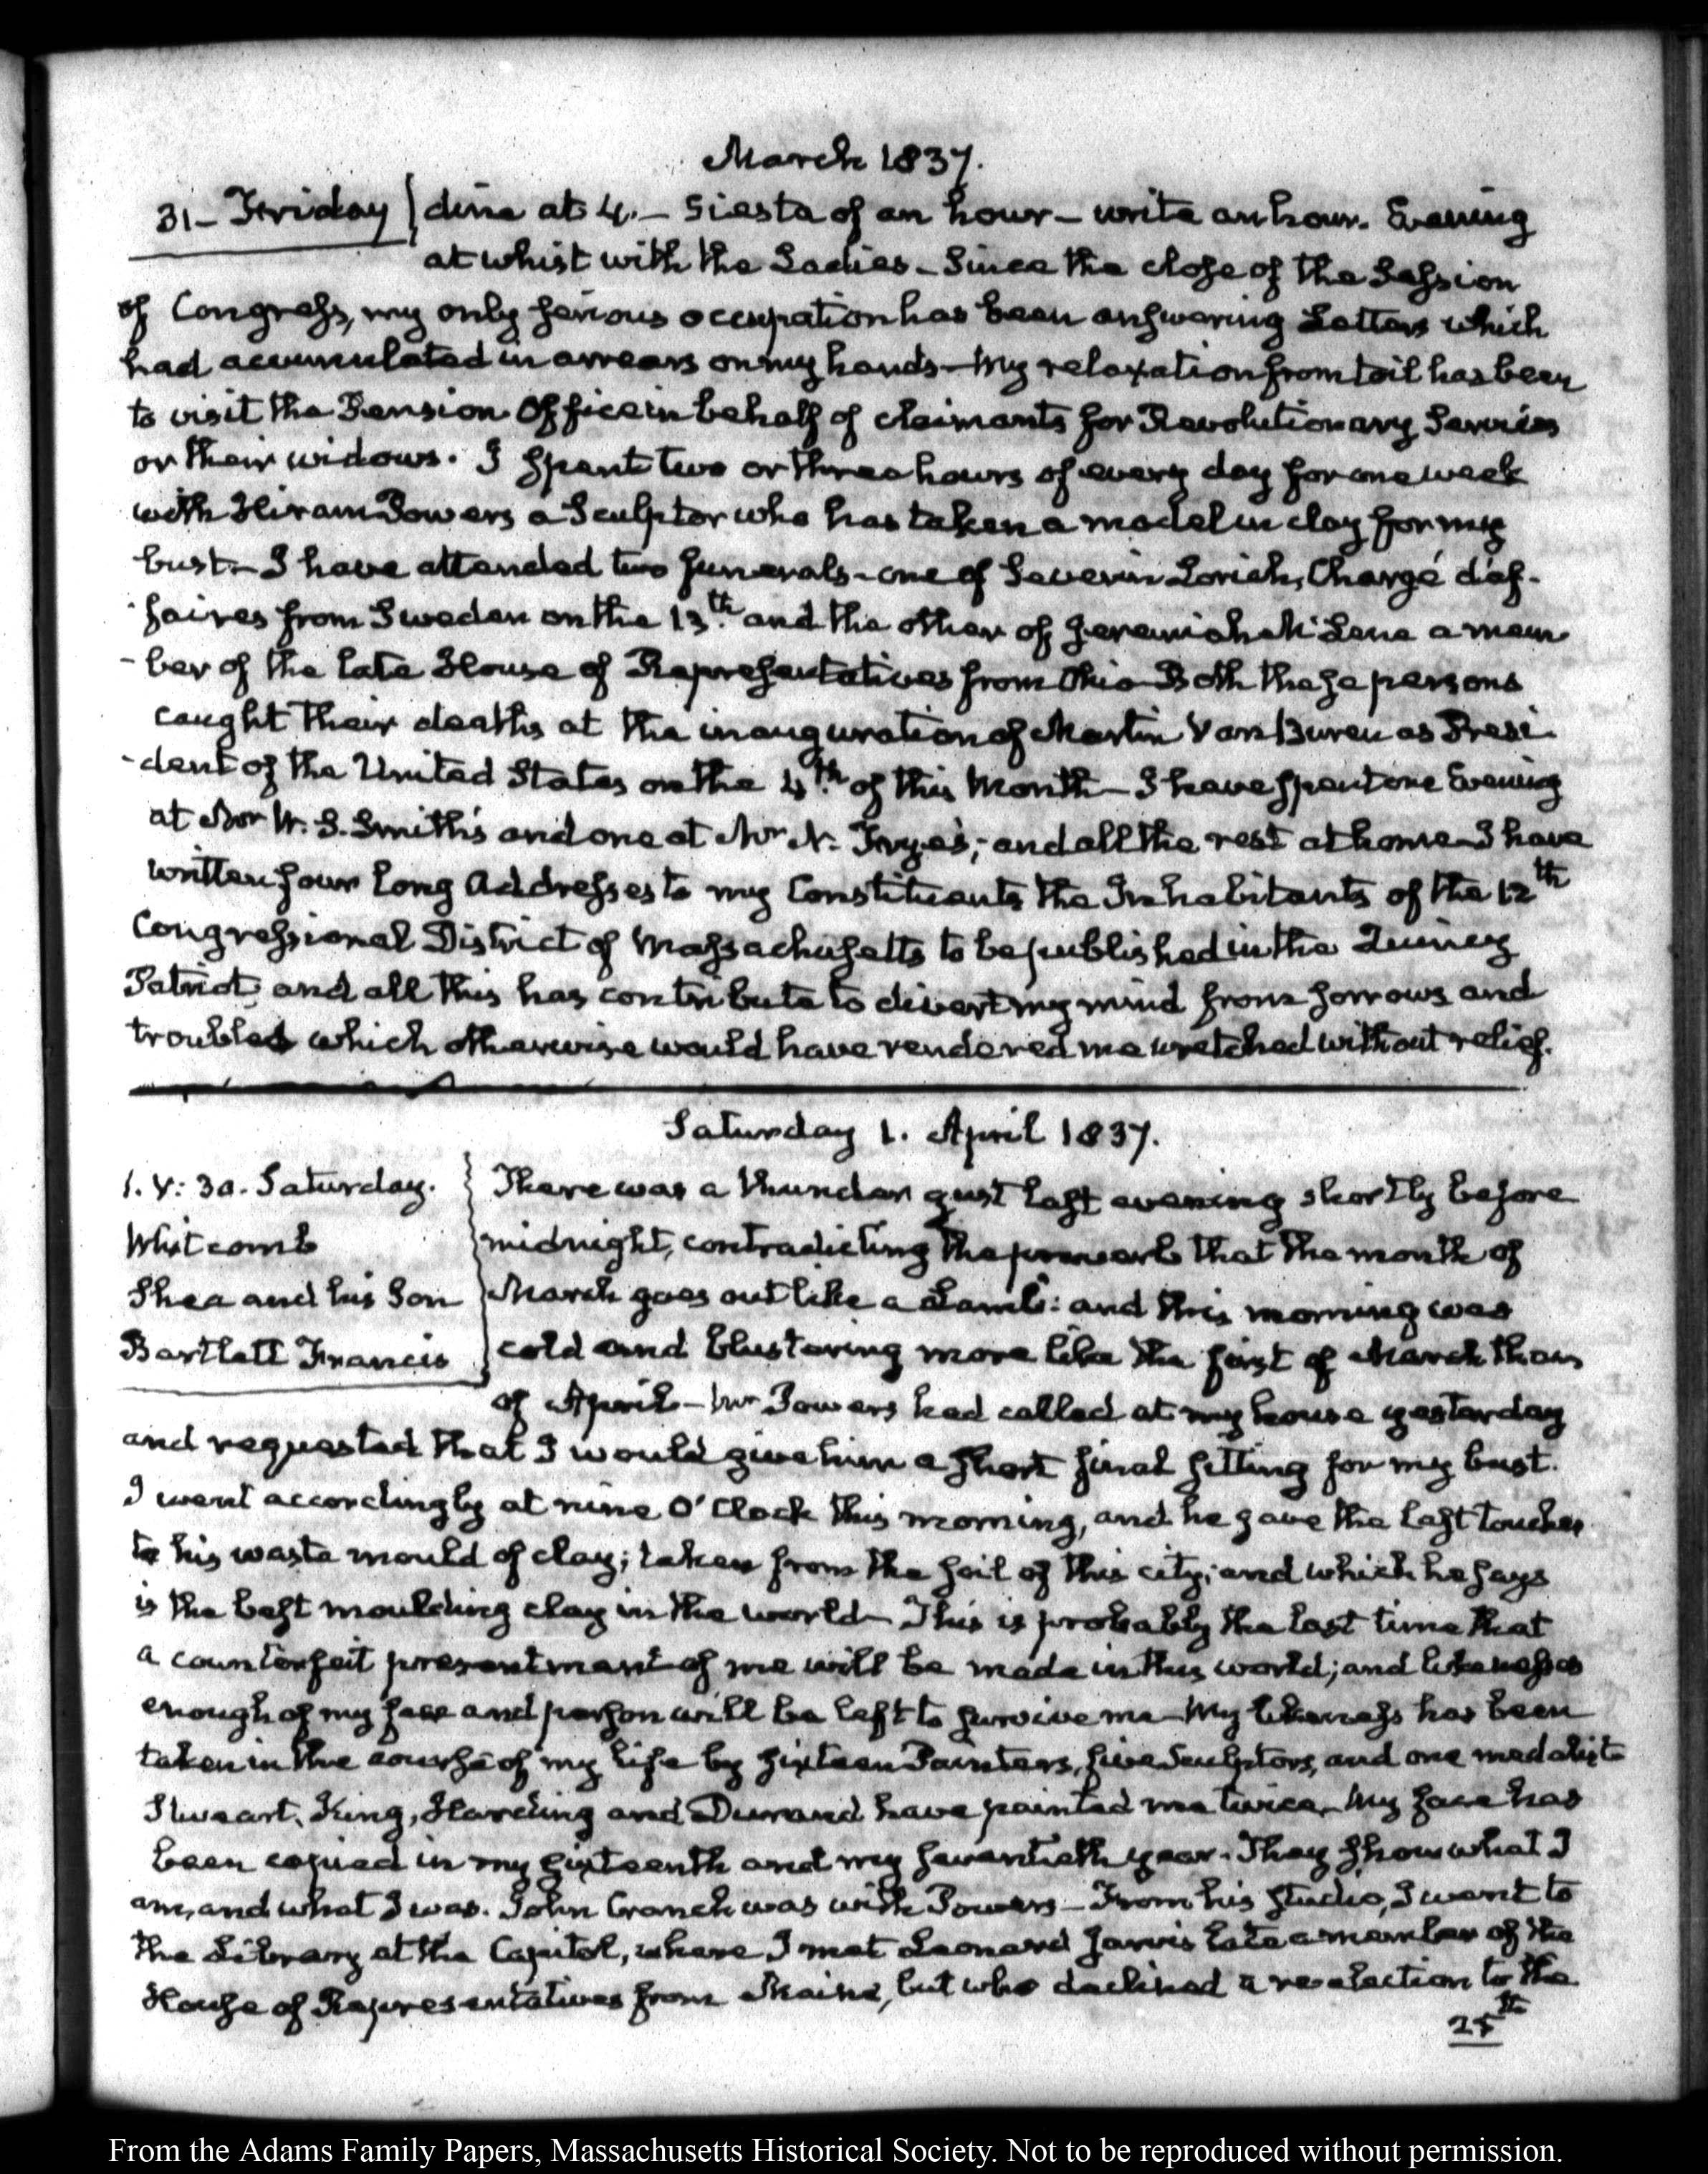 March 1837.
31 – Friday dine at 4. – Siesta of an hour – write an hour. Evening
at whist with the Ladies – Since the close of the Session
of Congress, my only serious occupation has been answering Letters which
had accumulated in arrears on my hands – My relaxation from toil has been
to visit the Pension Office in behalf of claimants for Revolutionary Services
or their widows. I spent two or three hours of every day for one week
with Hiram Powers a Sculptor who has taken a model in clay for my
bust – I have attended two funerals – one of Severin Lorich, Chargé d'af-
faires from Sweden on the 13th. and the other of Jeremiah Mc Lene a mem
-ber of the late House of Representatives from Ohio – Both these persons
caught their deaths at the inauguration of Martin Van Buren as Presi-
-dent of the United States on the 4th. of this Month – I have spent one Evening
at Mr W. S. Smith's and one at Mr N. Frye's; and all the rest at home – I have
written four long Addresses to my Constituents the Inhabitants of the 12th
Congressional District of Massachusetts to be published in the Quincy
Patriot, and all this has contribute to divert my mind from sorrows and
troubles which otherwise would have rendered me wretched without relief.
Saturday 1. April 1837.
1. V: 30. Saturday. There was a thunder gust last evening shortly before
Whitcomb midnight, contradicting the proverb that the month of
Shea and his Son March goes out like a Lamb: and this morning was
Bartlett Francis cold and blustering more like the first of March than
of April – Mr Powers had called at my house yesterday
and requested that I would give him a short final sitting for my bust.
I went accordingly at nine O'Clock this morning, and he gave the last touches
to his waste mould of clay; taken from the soil of this city; and which he says
is the best moulding clay in the world – This is probably the last time that
a counterfeit presentment of me will be made in this world; and likenesses
enough of my face and person will be left to survive me – My likeness has been
taken in the course of my life by sixteen Painters, five Sculptors, and one medalist
Stuart, King, Harding and Durand have painted me twice – My face has
been copied in my sixteenth and my seventieth year. They show what I
am, and what I was. John Cranch was with Powers – From his studio, I went to
the Library at the Capitol, where I met Leonard Jarvis late a member of the
House of Representatives from Maine, but who declined a reelection to the
25th
From the Adams Family Papers, Massachusetts Historical Society. Not to be reproduced without permission.